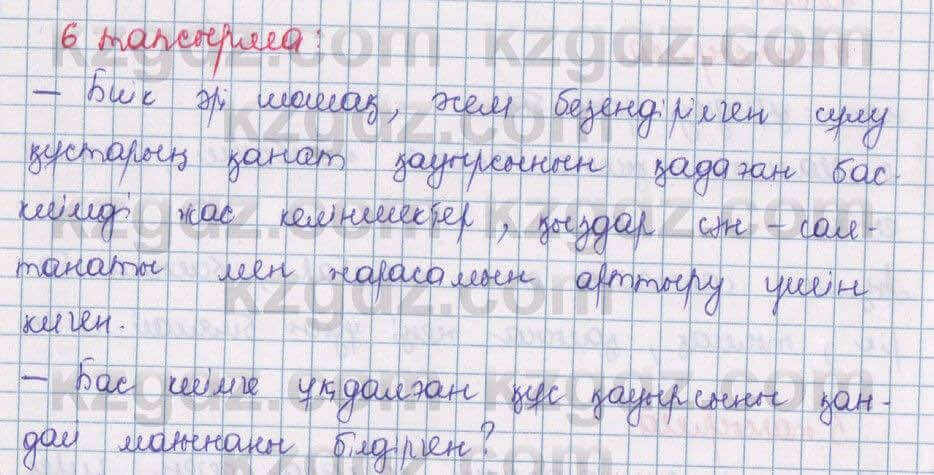 6 тапсырма:
– Биік әрі шошақ, әсем безендірілген сұлу
құстарың қанат қауырсынын қадаған бас
киімді жас келіншектер, қыздар сән-сал-
танаты мен жарасымын арттыру үшін
киген.
– Бас киімге үкідалған құс қауырсыны қан-
дай мағынаны білдірген?
kzgdz.com